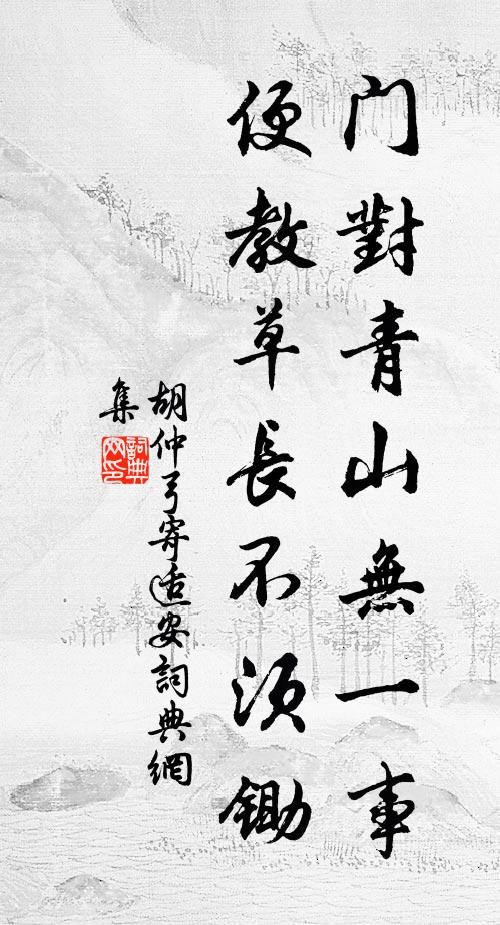 門對青山無一事
便教草長不須鋤
胡仲弓寄適安詞典網
集
詞典
网印